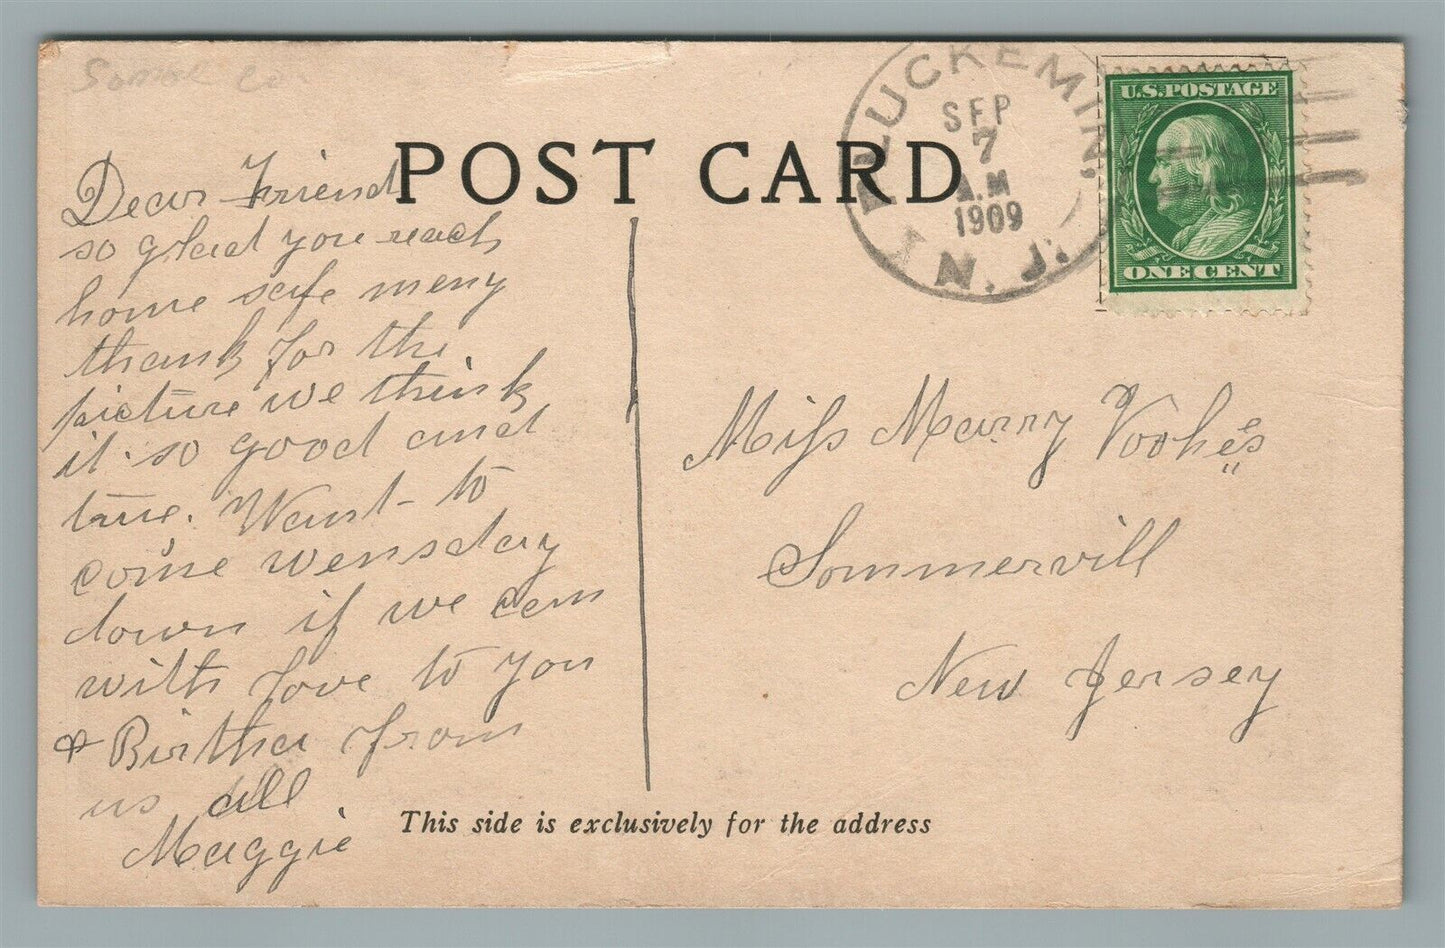 POST CARD
PLUCKEMIN,
SEP
7
A.M
1909
N. J.
U.S. POSTAGE
ONE CENT
Dear Friend
so glad you reach
home safe meny
thank for the
picture we think
it so good and
true. Want to
come wensday
down if we can
with love to you
& Birtha from
us all
Maggie
Miss Marry Voohes
Sommervill
New Jersey
This side is exclusively for the address